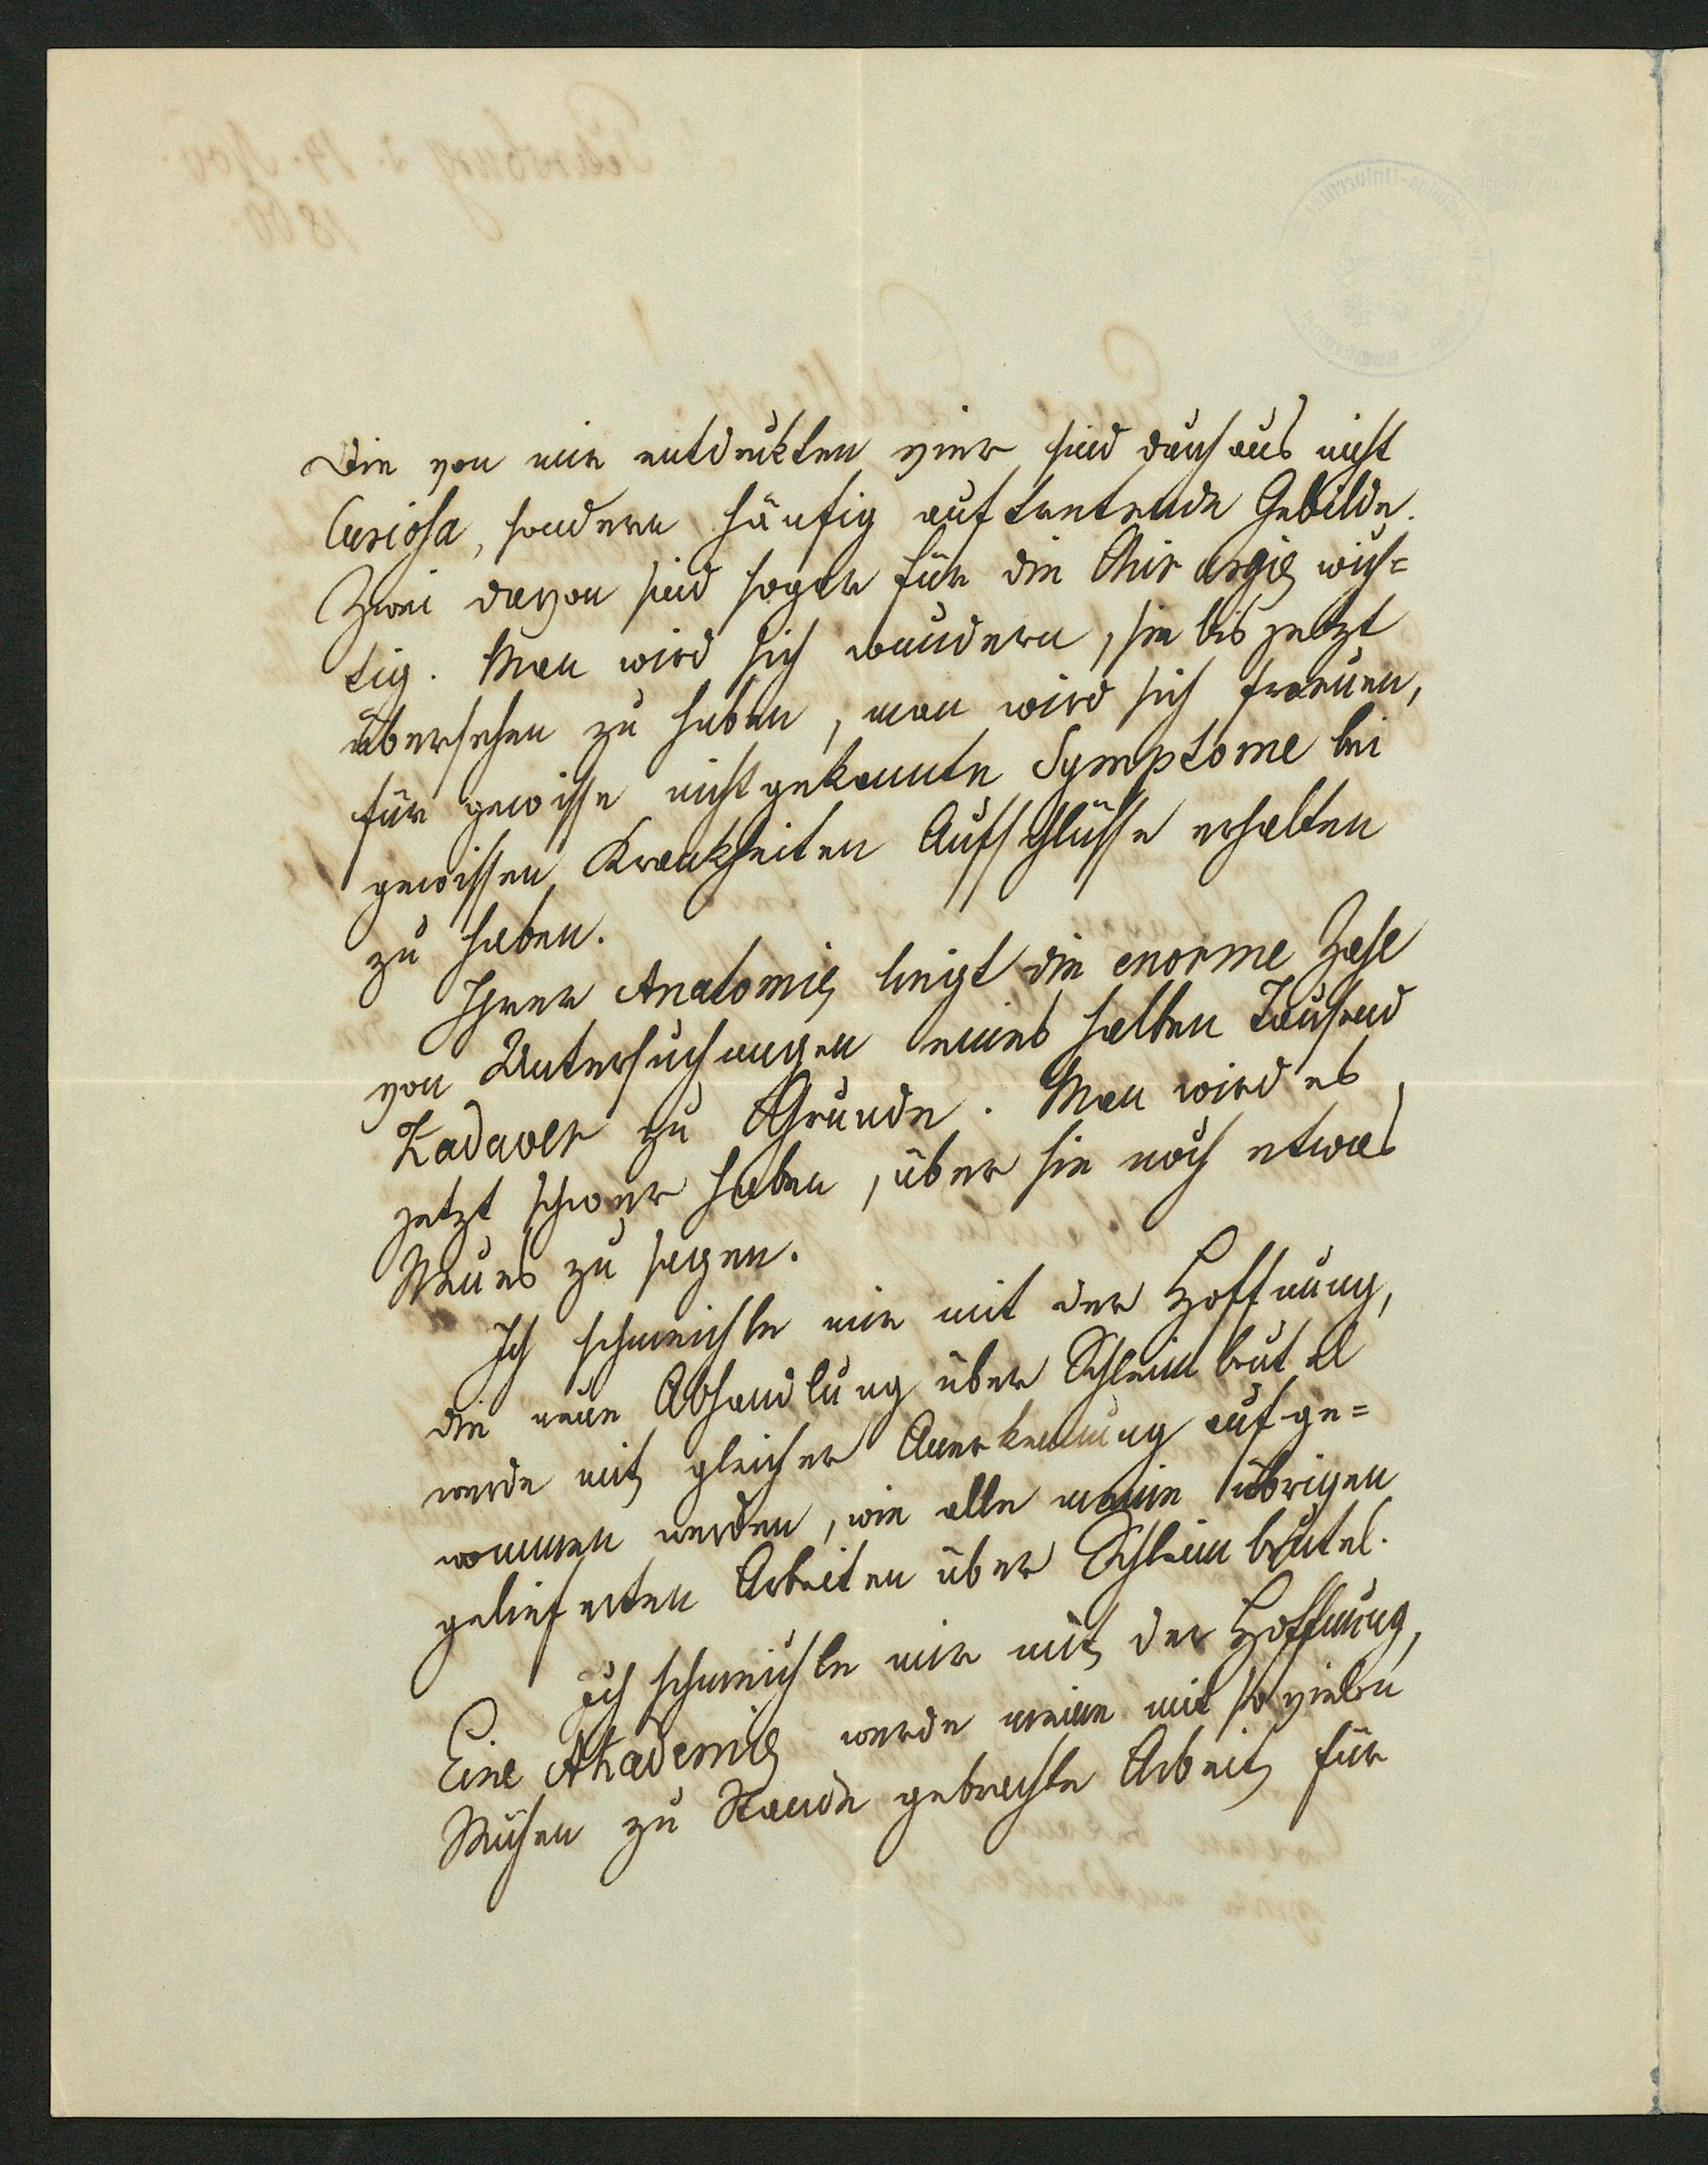 Die von mir entdeckten vier sind durchaus nicht
Curiosa, sondern häufig auftretende Gebilde.
Zwei davon sind sogar für die Chirurgie wich=
tig. Man wird sich wundern, sie bis jetzt
übersehen zu haben, man wird sich freuen,
für gewisse nicht gekannte Symptome bei
gewissen Krankheiten Aufschlüsse erhalten
zu haben.
Ihrer Anatomie liegt die enorme Zahl
von Untersuchungen eines halben Tausend
Kadaver zu Grunde. Man wird es
jetzt schwer haben, über sie noch etwas
Neues zu sagen.
Ich schmeichle mir mit der Hoffnung,
die neue Abhandlung über Schleimbeutel
werde mit gleicher Anerkennung aufge=
nommen werden, wie alle meine übrigen
gelieferten Arbeiten über Schleimbeutel.
Ich schmeichle mir mit der Hoffnung,
Eine Akademie werde meine mit so vielen
Mühen zu Stande gebrachte Arbeit für